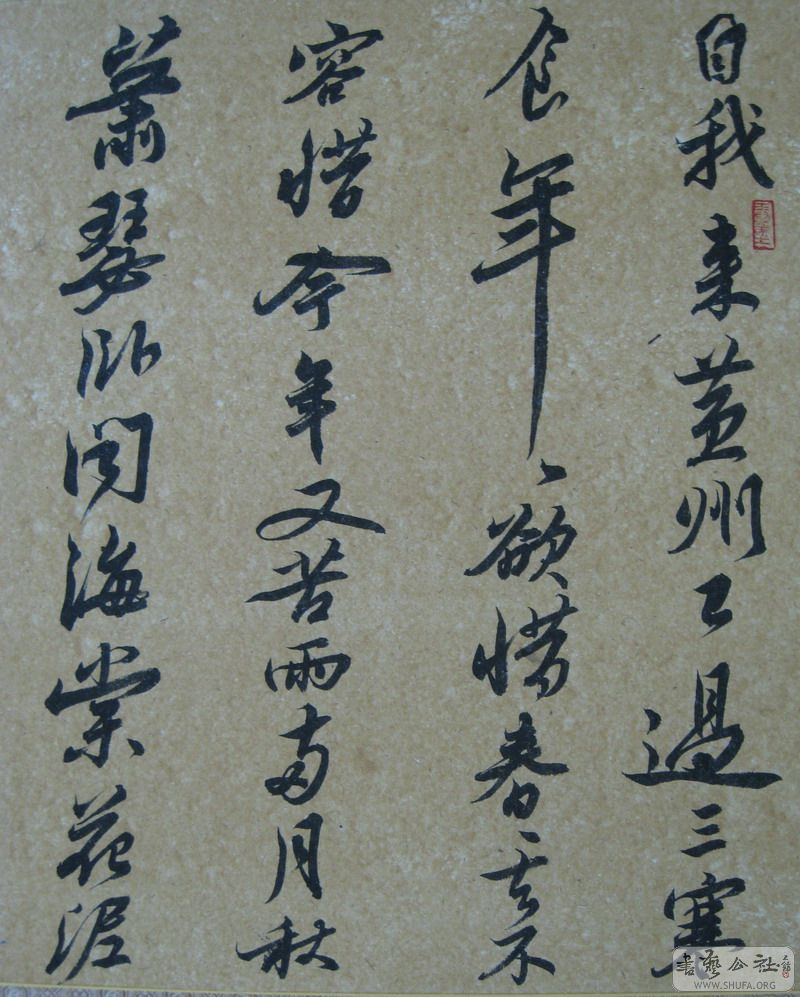 自我来黄州已過三寒
食年〻欲惜春〻去不
容惜今年又苦雨两月秋
萧瑟卧闻海棠花泥
書藝公社
WWW.SHUFA.ORG